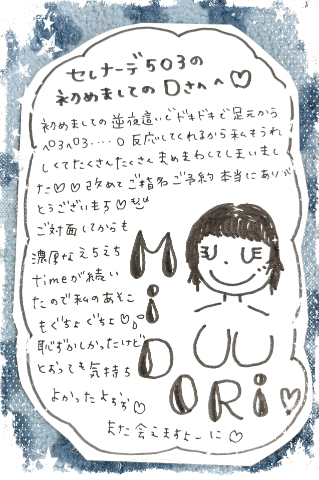 セレナーデ503の
初めましてのDさんへ♡
初めましての逆夜這いでドキドキで足元から
ペロペロ…○反応してくれるから私もうれ
しくてたくさんたくさんまめまわしてしまいまし
た♡♡改めてご指名ご予約本当にありが
とうございます♡
ご対面してからも
濃厚なえちえち
timeが続い
たので私のあそこ
もぐちょぐちょ♡
恥ずかしかったけど
とおっても気持ち
よかったよぉぉ♡
また会えますよーに♡
MiDORi